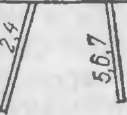 2,4
5,6,7